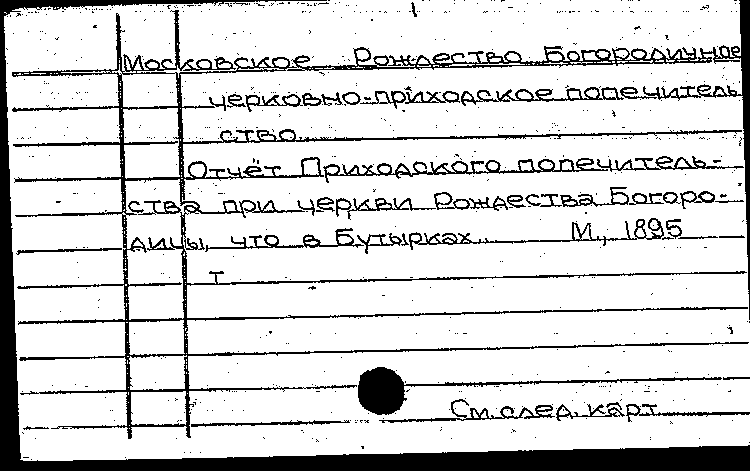 Московское Рождество Богородичное
церковно-приходское попечитель
ство.
Отчёт Приходского попечитель-
ства при церкви Рождества Богоро-
дицы, что в Бутырках. М., 1895
т
См. след. карт.